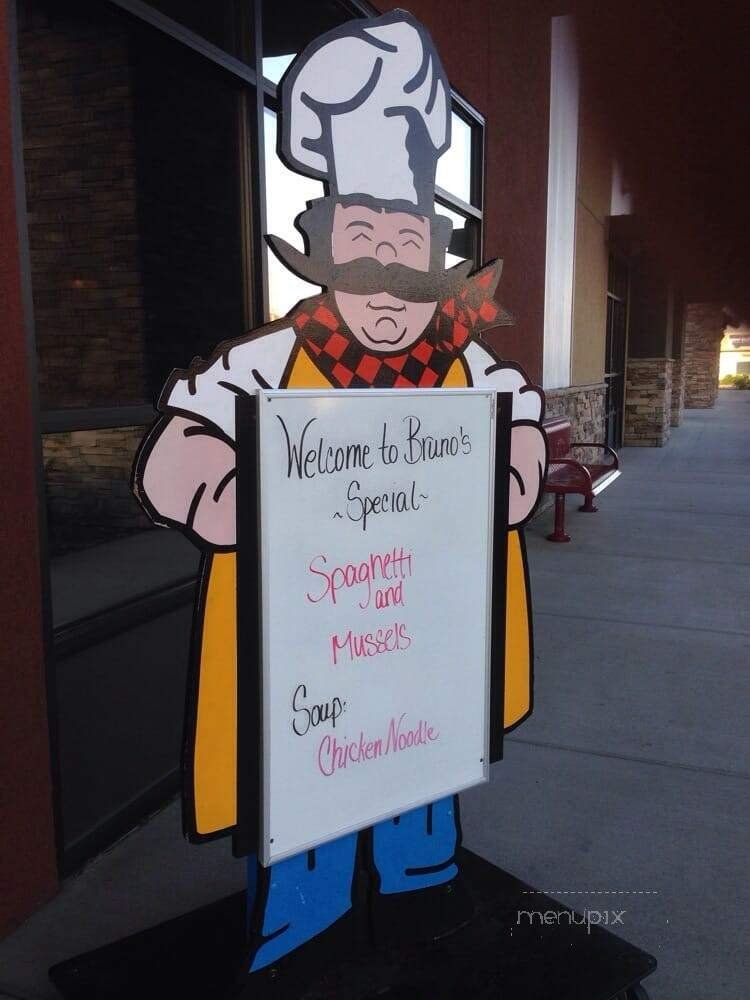 Welcome to Bruno's
~Special~
Spaghetti
and
Mussels
Soup:
Chicken Noodle
menupix